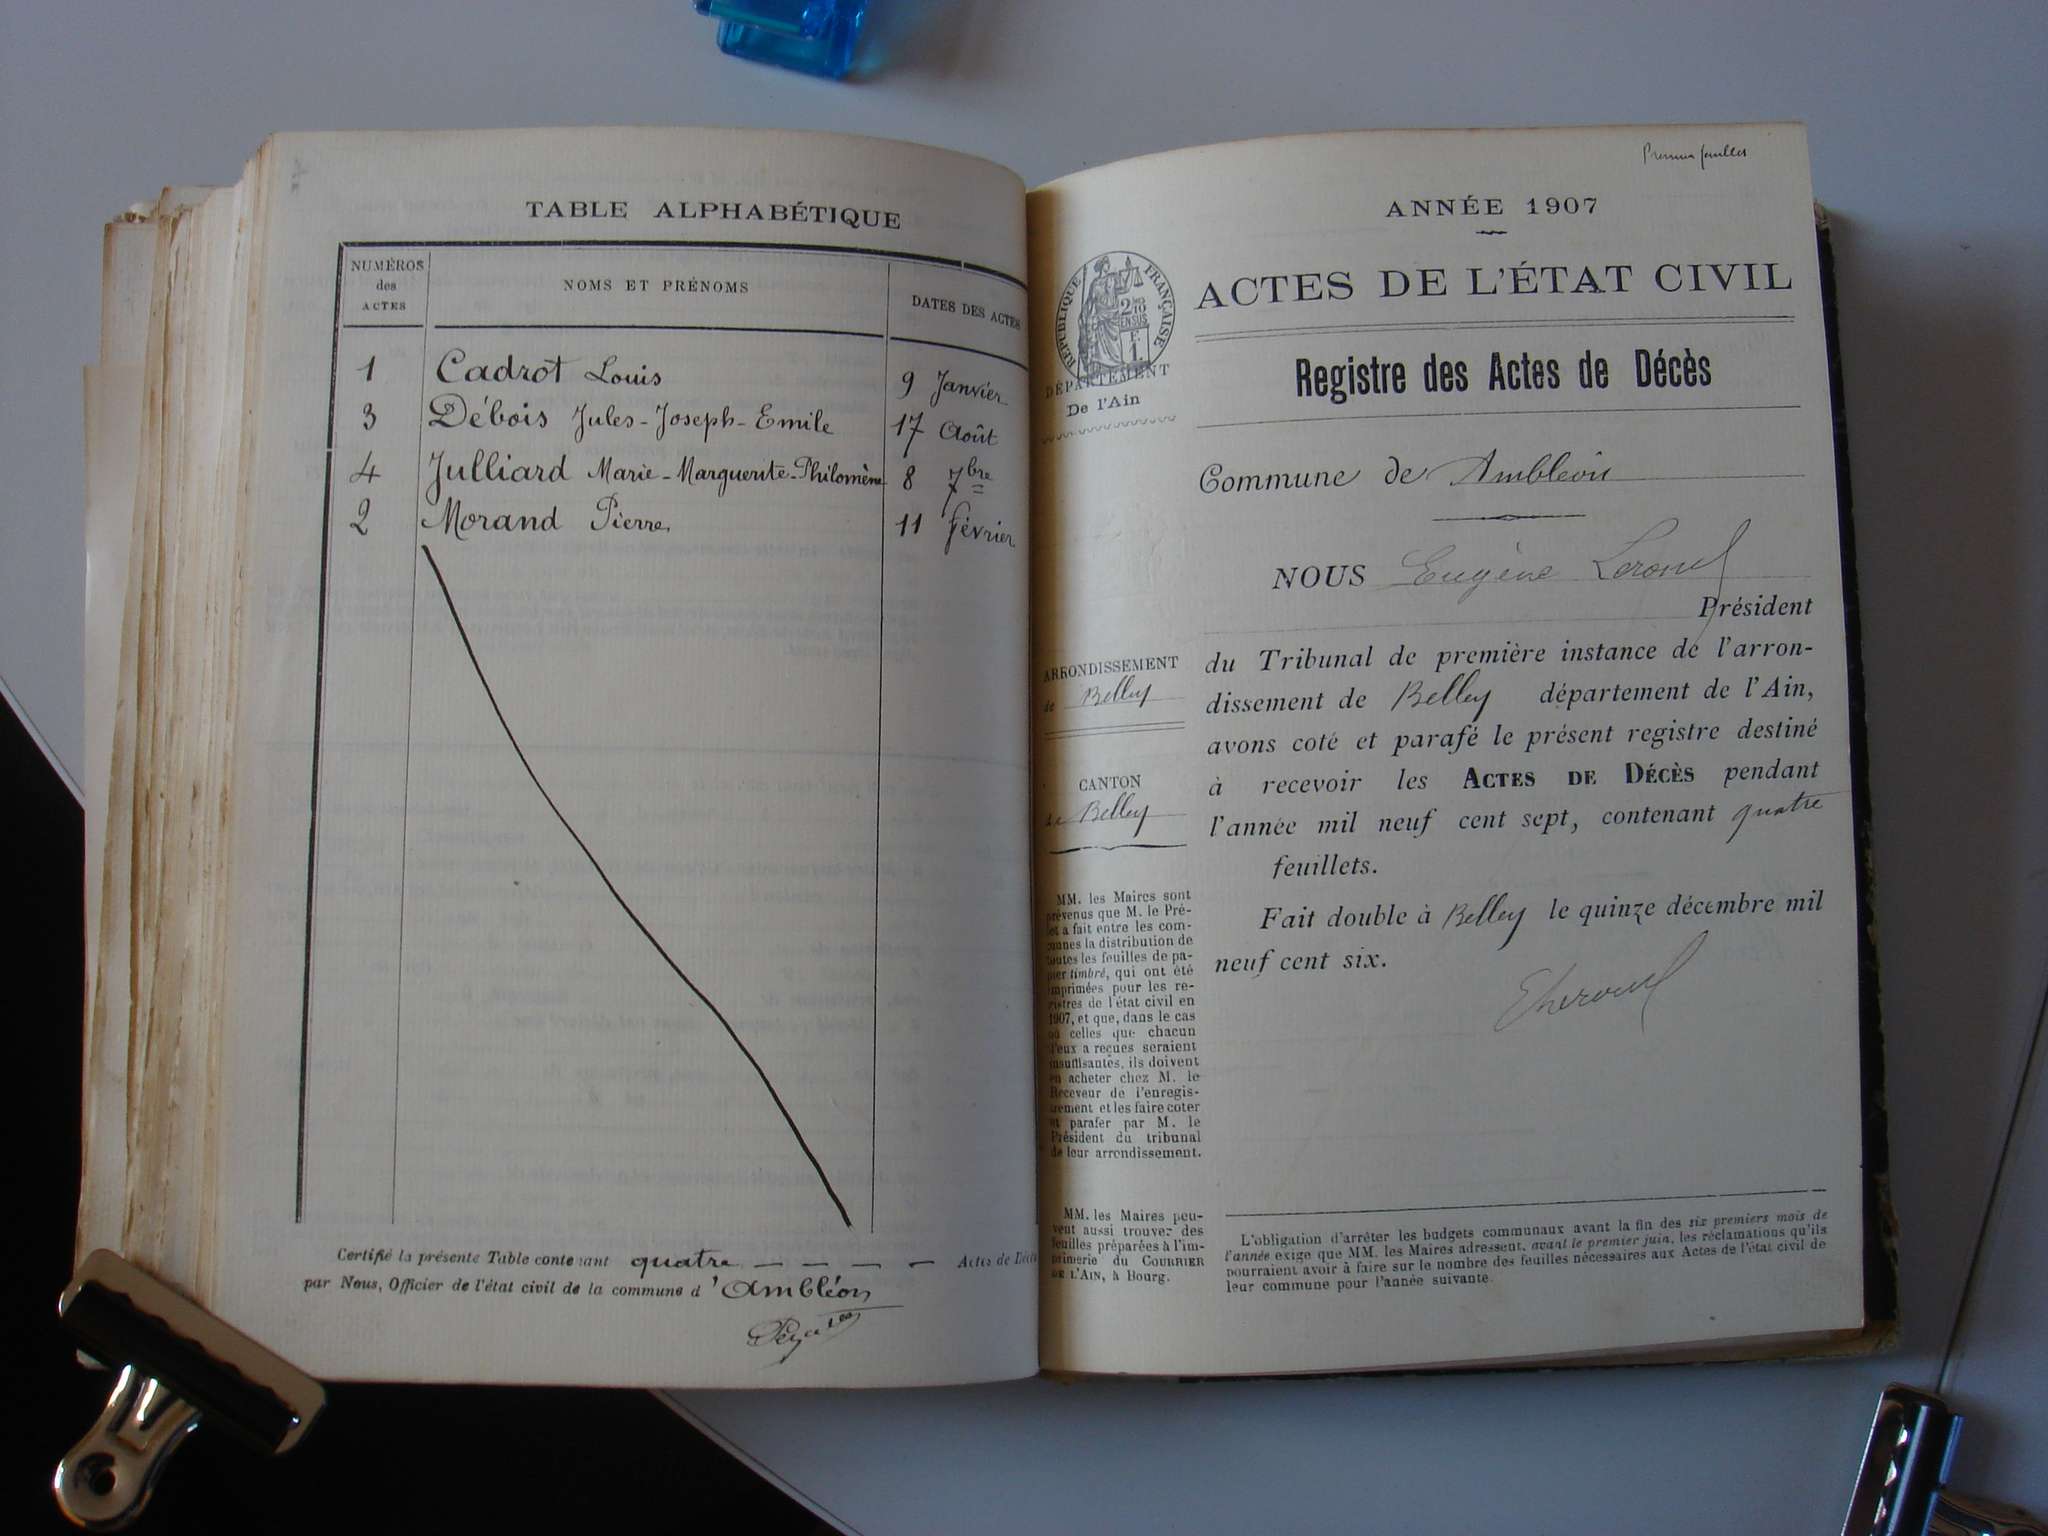 TABLE ALPHABÉTIQUE
NUMÉROS
des
ACTES
NOMS ET PRÉNOMS
DATES DES ACTES
1 Cadrot Louis 9 Janvier
3 Débois Jules-Joseph-Emile 17 Août
4 Julliard Marie-Marguerite-Philomène 8 7bre
2 Morand Pierre 11 Février
Certifié la présente Table contenant quatre Actes de Décè
par Nous, Officier de l'état civil de la commune d'Ambléon
Premier feuillet
ANNÉE 1907
ACTES DE L'ÉTAT CIVIL
RÉPUBLIQUE FRANÇAISE
DÉPARTEMENT
De l'Ain
Registre des Actes de Décès
Commune de Ambléon
NOUS Eugène
Président
du Tribunal de première instance de l'arron-
dissement de Belley département de l'Ain,
avons coté et parafé le présent registre destiné
à recevoir les ACTES DE DÉCÈS pendant
l'année mil neuf cent sept, contenant quatre
feuillets.
Fait double à Belley le quinze décembre mil
neuf cent six.
ARRONDISSEMENT
de Belley
CANTON
de Belley
MM. les Maires sont
prévenus que M. le Pré-
fet a fait entre les com-
munes la distribution de
toutes les feuilles de pa-
pier timbré, qui ont été
imprimées pour les re-
gistres de l'état civil en
1907, et que, dans le cas
où celles que chacun
d'eux a reçues seraient
insuffisantes, ils doivent
en acheter chez M. le
Receveur de l'enregis-
trement et les faire coter
et parafer par M. le
Président du tribunal
de leur arrondissement.
MM. les Maires peu-
vent aussi trouver des
feuilles préparées à l'im-
primerie du COURRIER
DE L'AIN, à Bourg.
L'obligation d'arrêter les budgets communaux avant la fin des six premiers mois de
l'année exige que MM. les Maires adressent, avant le premier juin, les réclamations qu'ils
pourraient avoir à faire sur le nombre des feuilles nécessaires aux Actes de l'état civil de
leur commune pour l'année suivante.